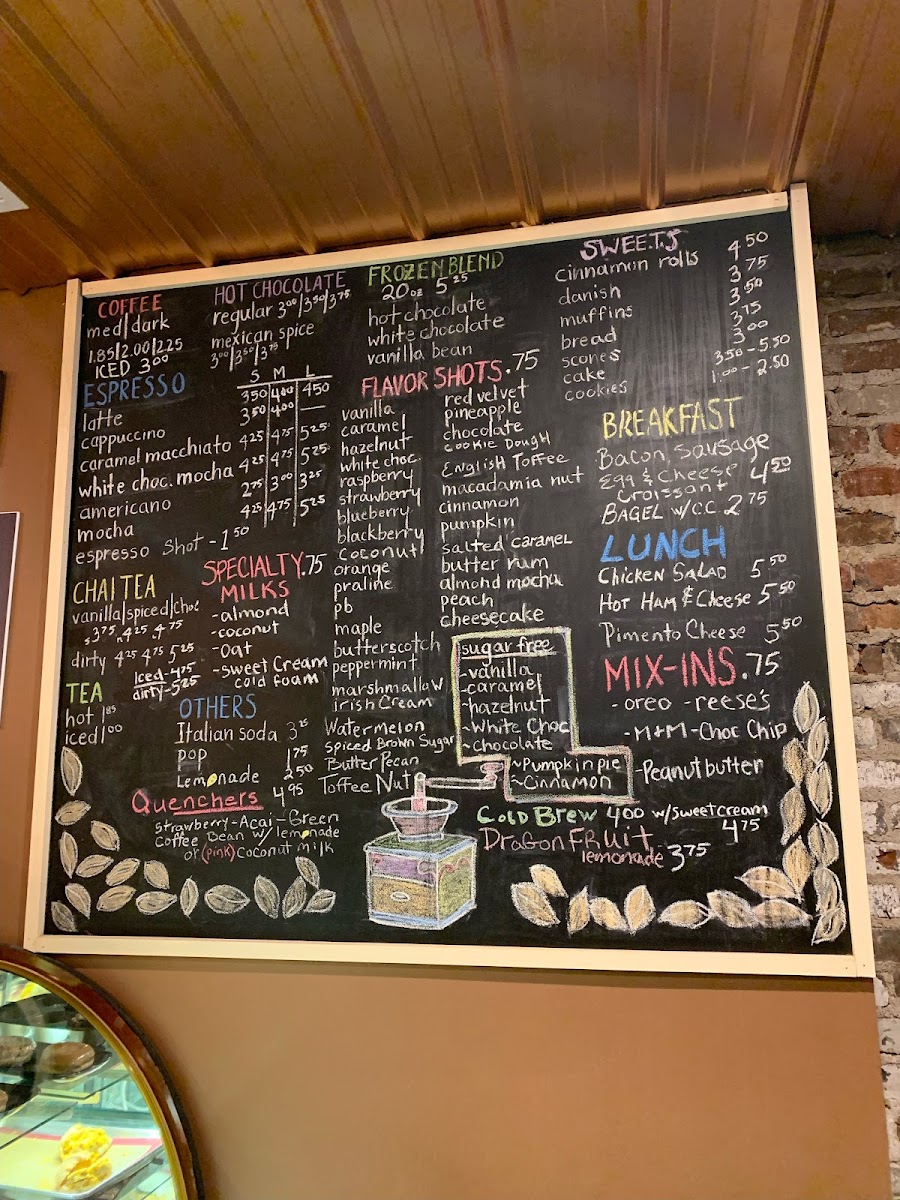 COFFEE
med/dark
1.85/2.00/2.25
ICED 3.00
HOT CHOCOLATE
regular 3.00/3.50/3.75
mexican spice
3.00/3.50/3.75
FROZEN BLEND
20 oz 5.25
hot chocolate
white chocolate
vanilla bean
SWEETS
cinnamon rolls 4.50
danish 3.75
muffins 3.50
bread 3.75
scones 3.00
cake 3.50-5.50
cookies 1.00-2.50
ESPRESSO
S M L
latte 3.50 4.00 4.50
cappuccino 3.50 4.00 —
caramel macchiato 4.25 4.75 5.25
white choc. mocha 4.25 4.75 5.25
americano 2.75 3.00 3.25
mocha 4.25 4.75 5.25
espresso shot - 1.50
FLAVOR SHOTS .75
vanilla
caramel
hazelnut
white choc.
raspberry
strawberry
blueberry
blackberry
coconut
orange
praline
pb
maple
butterscotch
peppermint
marshmallow
irish cream
Watermelon
Spiced Brown Sugar
Butter Pecan
Toffee Nut
red velvet
pineapple
chocolate
cookie Dough
English Toffee
macadamia nut
cinnamon
pumpkin
salted caramel
butter rum
almond mocha
peach
cheesecake
sugar free
-vanilla
-caramel
-hazelnut
-White Choc
~chocolate
~Pumpkin pie
~Cinnamon
BREAKFAST
Bacon, Sausage
Egg & Cheese
Croissant 4.50
BAGEL w/CC 2.75
LUNCH
Chicken Salad 5.50
Hot Ham & Cheese 5.50
Pimento Cheese 5.50
MIX-INS .75
-oreo -reese's
-M+M-Choc Chip
-Peanut butter
CHAI TEA
vanilla/spiced/choc
3.75 4.25 4.75
dirty 4.25 4.75 5.25
Iced-4.75
dirty-5.25
SPECIALTY .75
MILKS
-almond
-coconut
-Oat
-sweet Cream
cold foam
TEA
hot 1.85
iced 1.00
OTHERS
Italian soda 3.25
pop 1.75
Lemonade 2.50
Quenchers 4.95
Strawberry-Acai-Green
Coffee Bean w/ lemonade
or (pink) Coconut milk
Cold Brew 4.00 w/sweetcream
4.75
Dragon Fruit
lemonade 3.75